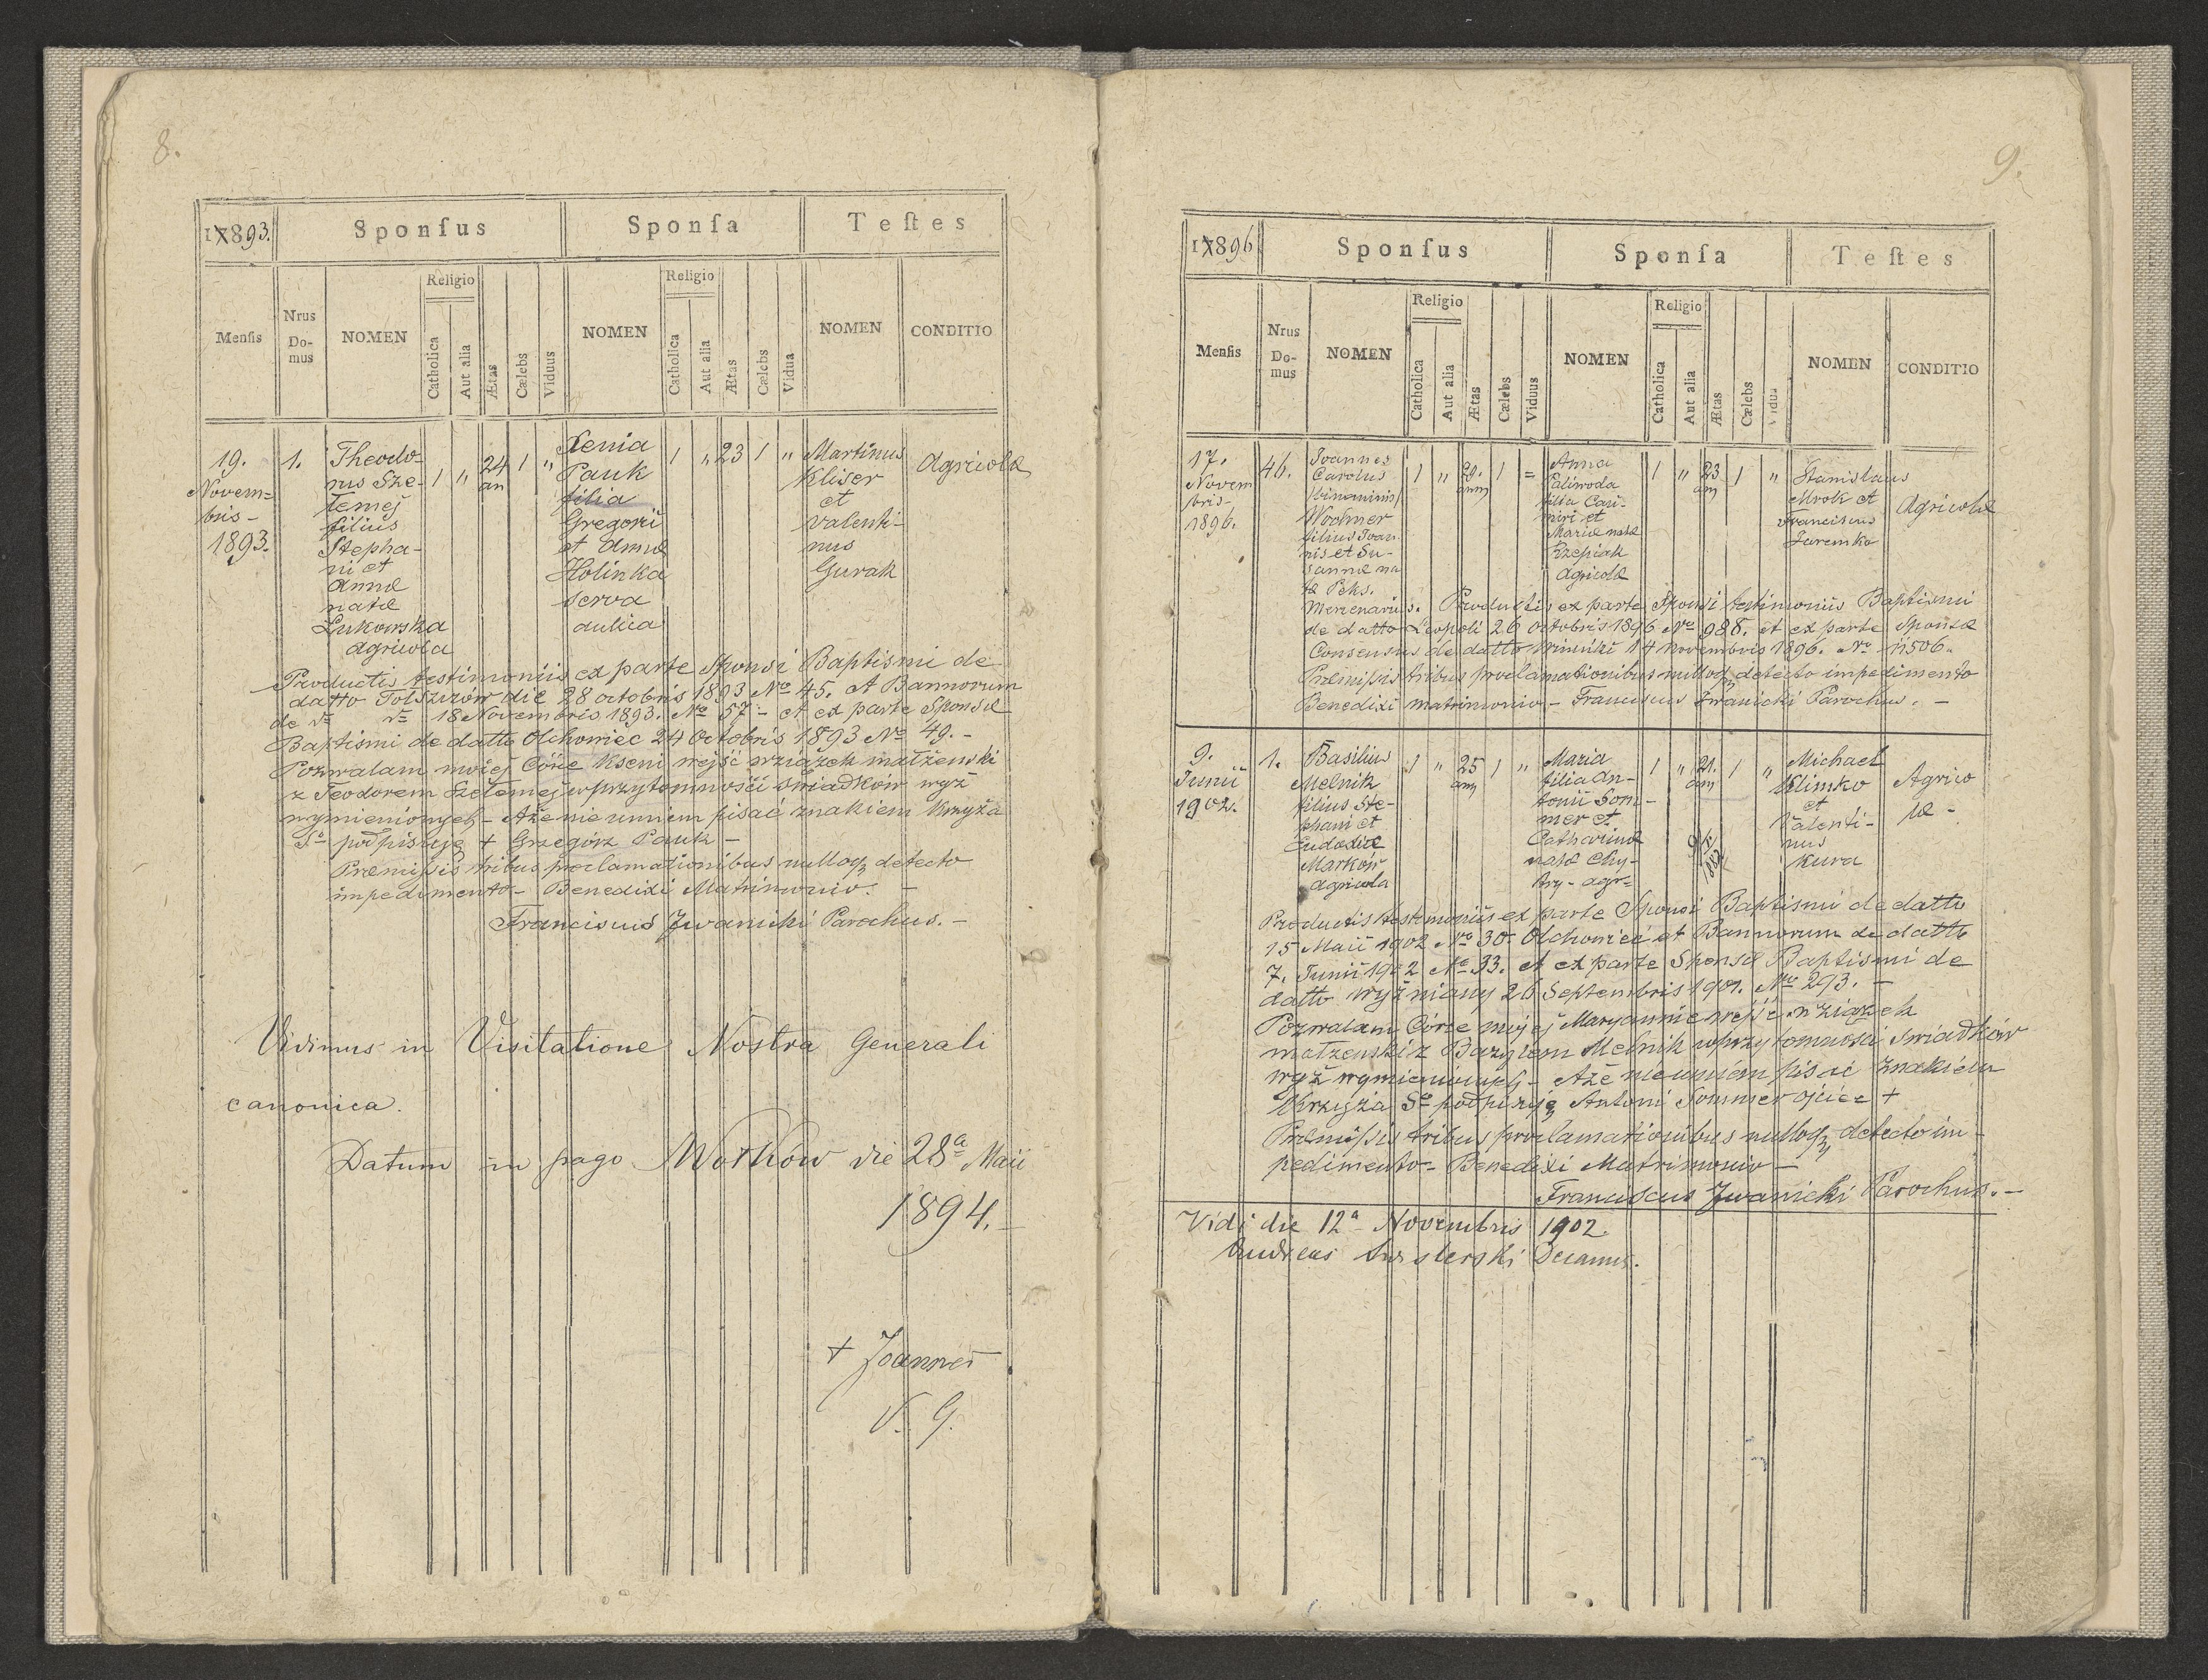 8.
1893.
Sponſus
Sponſa
Teſtes
Menſis
Nrus Do-mus
NOMEN
Religio
Catholica
Aut alia
Ætas
Cælebs
Viduus
NOMEN
Religio
Catholica
Aut alia
Ætas
Cælebs
Vidua
NOMEN
CONDITIO
19.
Novem=
bris -
1893.
1.
Theodo-
rus Sze-
temej
filius
Stepha-
ni et
Annæ
natæ
Łukowska
agricola
1 " 24 an 1 "
Xenia
Pauk
filia
Gregorii
et Annæ
Holinka
serva
aulica
1 " 23 1 "
Martinus
Kliser
et
Valenti-
nus
Gurak
Agricolæ
Productis testimoniis ex parte Sponsi Baptismi de
datto Tołszczów die 28 octobris 1893 No 45. et Bannorum
de 18 Novembris 1893. No 57 - et ex parte Sponsæ
Baptismi de datto Olchowiec 24 Octobris 1893 No 49. -
Pozwalam mojej Córce Kseni wejść w związek małżeński
z Teodorem Szetemej w przytomności świadków wyż
wymienionych - A że nie umiem pisać znakiem Krzyża
So podpisuję + Grzegórz Pauk -
Præmissis tribus proclamationibus nulloq detecto
impedimento - Benedixi Matrimonio. -
Franciscus Iwanicki Parochus. -
Vidimus in Visitatione Nostra Generali
canonica.
Datum in pago Wołków die 28a Maii
1894. -
+ Joannes
V. G.
9.
1896
Sponſus
Sponſa
Teſtes
Menſis
Nrus Do-mus
NOMEN
Religio
Catholica
Aut alia
Ætas
Cælebs
Viduus
NOMEN
Religio
Catholica
Aut alia
Ætas
Cælebs
Vidua
NOMEN
CONDITIO
17.
Novem
bris -
1896.
46.
Joannes
Carolus
/binominis/
Wochmer
filius Joan
nis et Su-
sannæ na
tæ Peks.
mercenarius.
1 " 29. ann 1 =
Anna
Paliwoda
filia Casi-
miri et
Mariæ natæ
Rzepiak
agricolæ
1 " 23 an 1 "
Stanislaus
Mrok et
Franciscus
Juremko
Agricolæ
Productis ex parte Sponsi testimoniis Baptismi
de datto Leopoli 26 octobris 1896 No 988. et ex parte Sponsæ
Consensus de datto Winniki 14 novembris 1896. No 11506.
Præmissis tribus proclamationibus nulloq detecto impedimento
Benedixi matrimonio - Franciscus Iwanicki Parochus. -
9.
Junii
1902.
1.
Basilius
Melnik
filius Ste-
phani et
Eudoxiæ
Markow
agricola
1 " 25 ann 1 "
Maria
filia An-
tonii Som-
mer et
Catharinæ
natæ Chy-
try - agr=
1 " 21. an 1 "
Michael
Klimko
et
Valenti-
nus
Kura
Agrico
læ -
Productis testimoniis ex parte Sponsi Baptismi de datto
15 Maii 1902 No 30. Olchowiec et Bannorum de datto
7. Junii 1902 No 33. et ex parte Sponsæ Baptismi de
datto Wyżniany 26 Septembris 1901. No 293. -
Pozwalam Córce mojej Maryannie wejść w związek
małżenski z Bazylem Melnik w przytomności swiadków
wyż wymienionych - A że nie umiem pisać znakiem
Krzyża So podpisuję Antoni Sommer ojciec +
Præmissis tribus proclamationibus nulloq detecto im-
pedimento - Benedixi Matrimonio -
Franciscus Iwanicki Parochus. -
Vidi die 12a Novembris 1902.
Andreas Decanus.